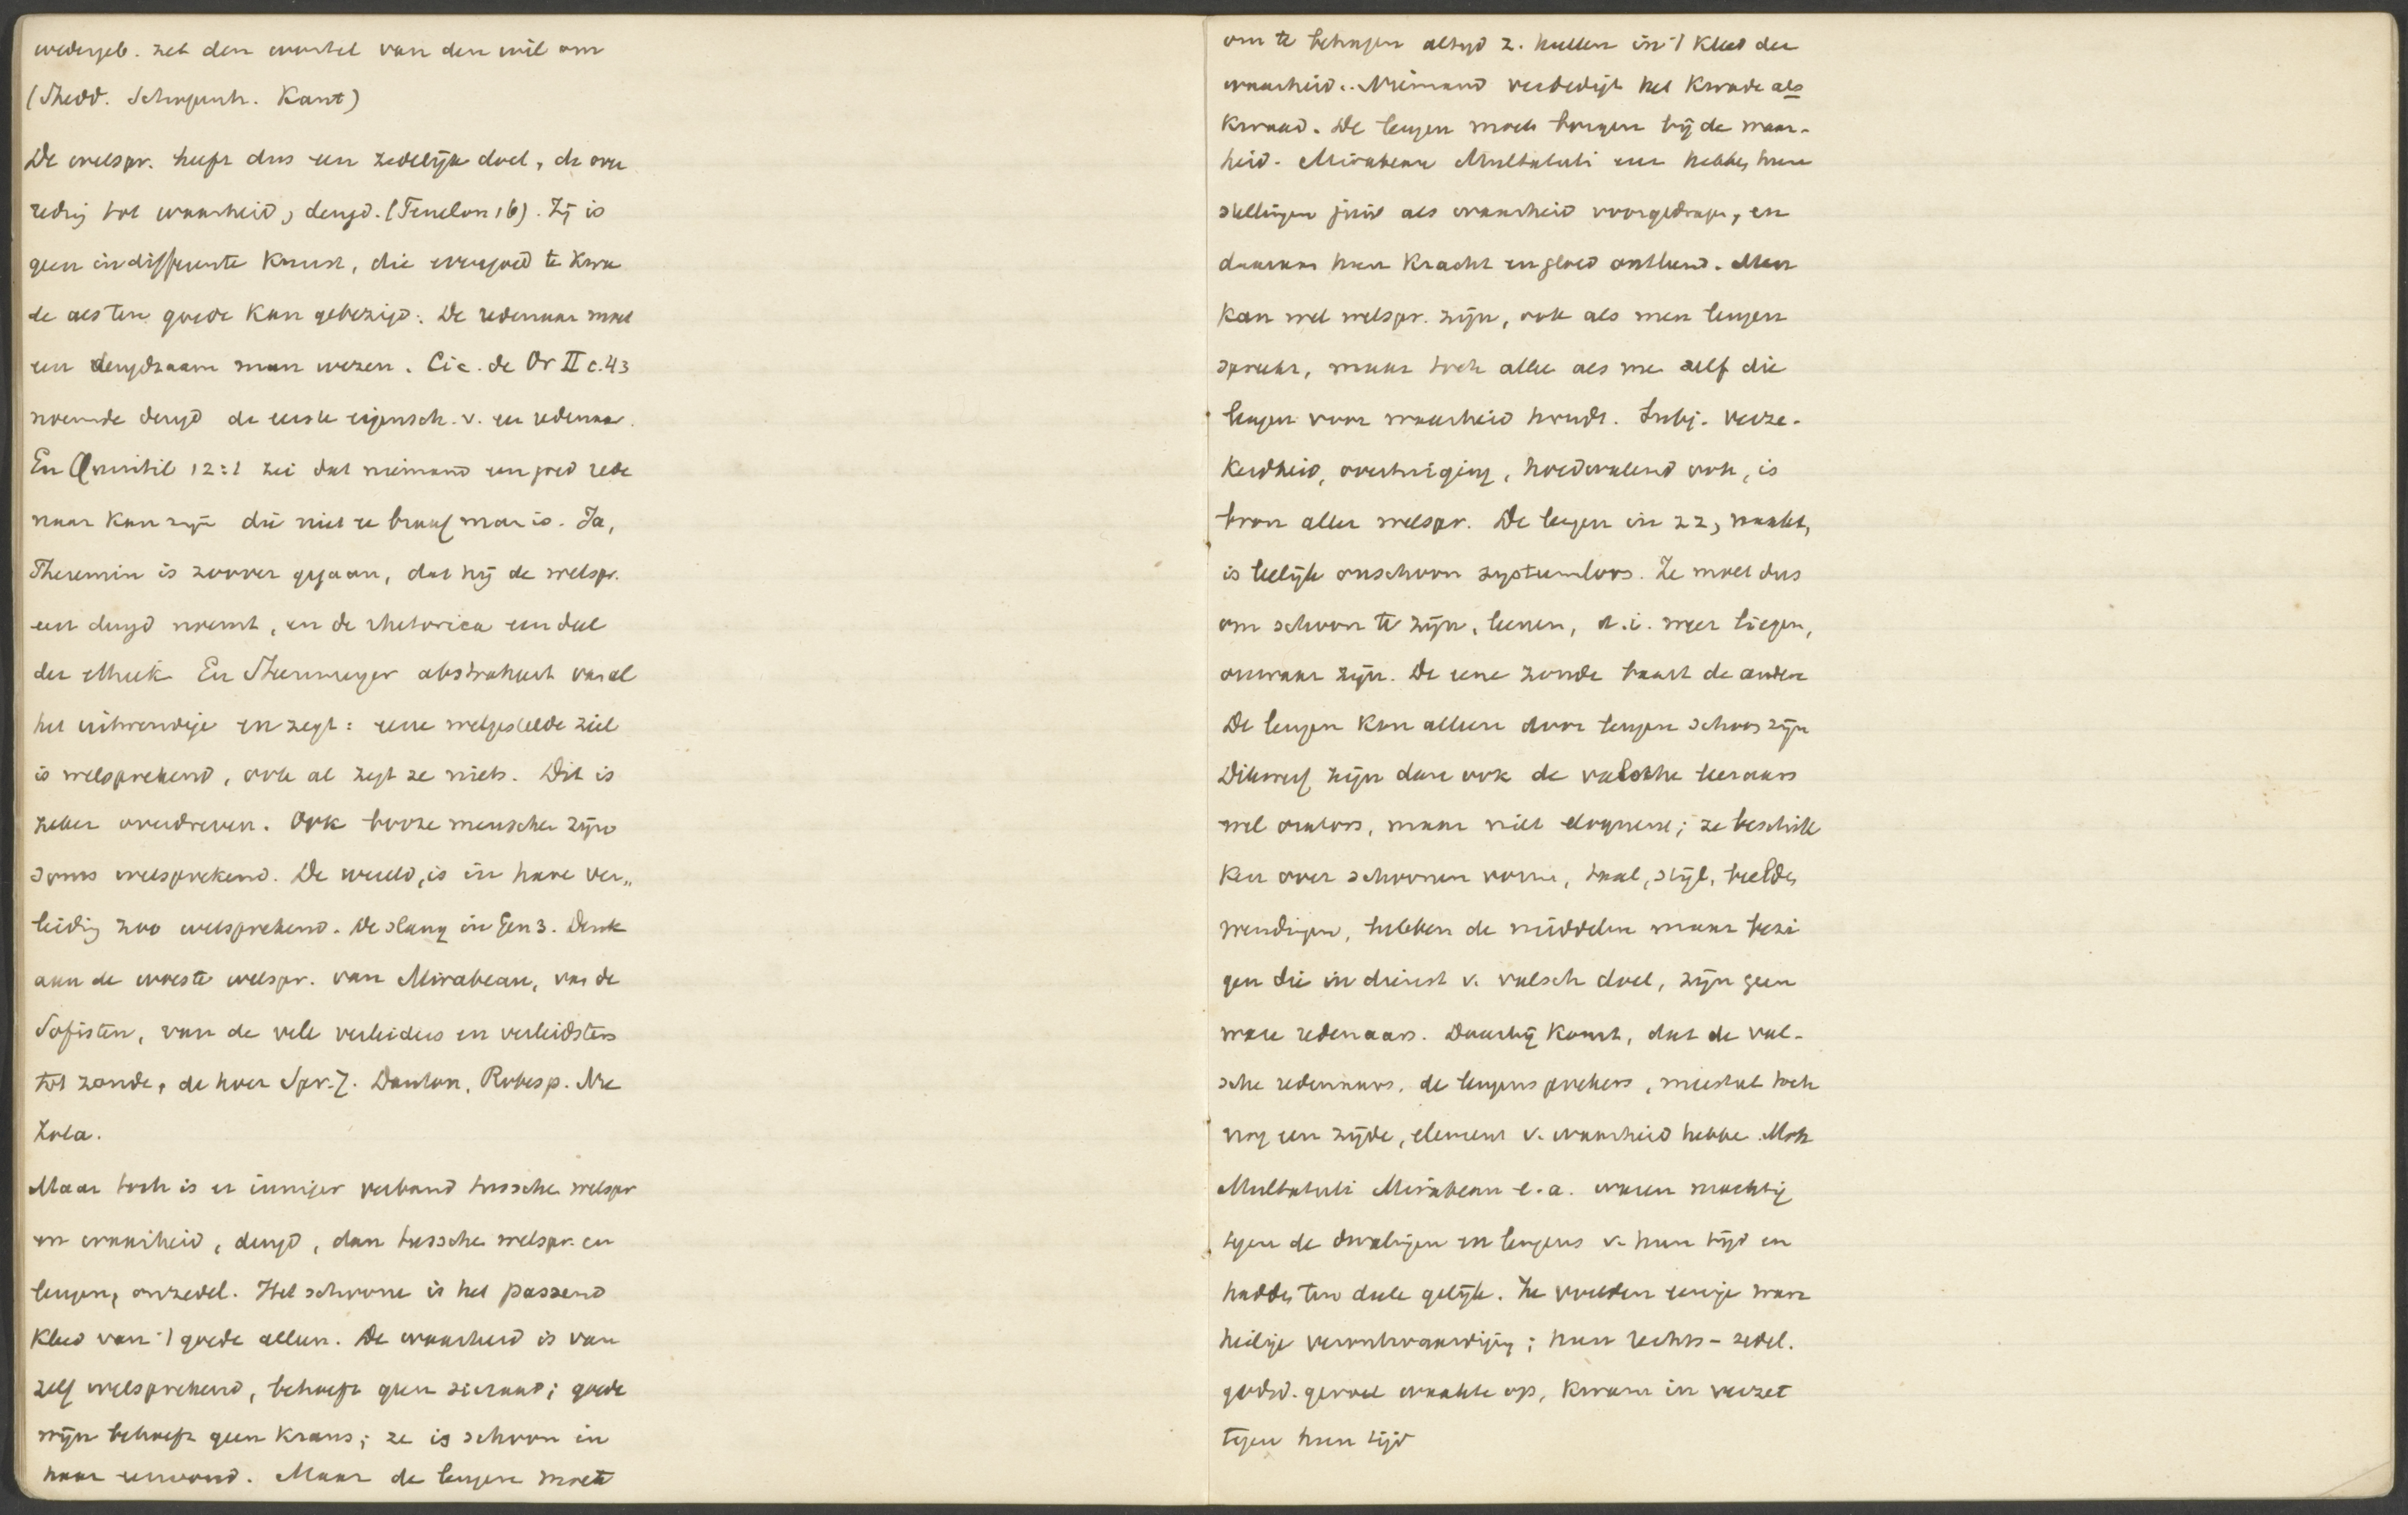 wedergeb. zet den wortel van den wil om
(Thedd. Schopenh. Kant)
De welspr. heeft dus een zedelijk doel, de over
reding tot waarheid, deugd. (Fenelon 16). Zij is
geen indifferente Kunst, die evengoed te Kwa
de als ten goede Kan gebezigd. De redenaar moet
een deugdzaam man wezen. Cic. de Or II c. 43
noemde deugd de eerste eigensch. v. een redenaar.
En Quintil 12:1 zei dat niemand een goed rede
naar Kan zijn die niet een braaf man is. Ja,
Theremin is zoover gegaan, dat hij de welspr.
een deugd noemt, en de rhetorica een deel
der ethiek. En abstraheert van al
het uitwendige en zegt: eene welgestelde ziel
is welsprekend, ook al zegt ze niets. Dit is
zeker overdreven. Ook booze menschen zijn
soms welsprekend. De wereld, is in hare ver„
leiding zoo welsprekend. De slang in Gen 3. Denk
aan de woeste welspr. van Mirabeau, van de
Sofisten, van de vele verleiders en verleidsters
tot zonde, de hoer Spr. 7. Danton, Robesp.
Zola.
Maar toch is er inniger verband tusschen welspr
en waarheid, deugd, dan tusschen welspr. en
leugen, onzedel. Het schoone is het passend
Kleed van 't goede alleen. De waarheid is van
zelf welsprekend, behoeft geen sieraad; goede
wijn behoeft geen Krans; ze is schoon in
haar eenvoud. Maar de leugen moet
om te behagen altijd z. hullen in 't Kleed der
waarheid. Niemand verdedigt het Kwade als
Kwaad. De leugen moet borgen bij de waar-
heid. Mirabeau Multatuli enz hebben hun
stellingen juist als waarheid voorgedragen, en
daaraan hun Kracht en gloed ontleend. Men
Kan wel welspr. zijn, ook als men leugen
spreekt, maar toch alleen als men zelf die
leugen voor waarheid houdt. Subj. verze-
Kerdheid, overtuiging, hoedwalend ook, is
bron aller welspr. De leugen in zz, naakt,
is leelijk onschoon systeemloos. Ze moet dus
om schoon te zijn, leenen, d.i. weer liegen,
onwaar zijn. De eene zonde baart de andere
De leugen Kan alleen door leugen schoon zijn
Dikwerf zijn dan ook de valsche leeraars
wel orators, maar niet eloquent; ze beschik
Ken over schoonen vorm, taal, stijl, beelden
wendingen, hebben de middelen maar bezi
gen die in dienst v. valsch doel, zijn geen
ware redenaars. Daarbij Komt, dat de val-
sche redenaars, de leugensprekers, meestal toch
nog een zijde, element v. waarheid hebben. Ook
Multatuli Mirabeau e.a. waren machtig
tegen de dwalingen en leugens v. hun tijd en
hadden ten deele gelijk. Ze voelden eenige ware
heilige verontwaardiging; hun rechts- zedel.
godsd. gevoel waakte op, Kwam in verzet
tegen hun tijd